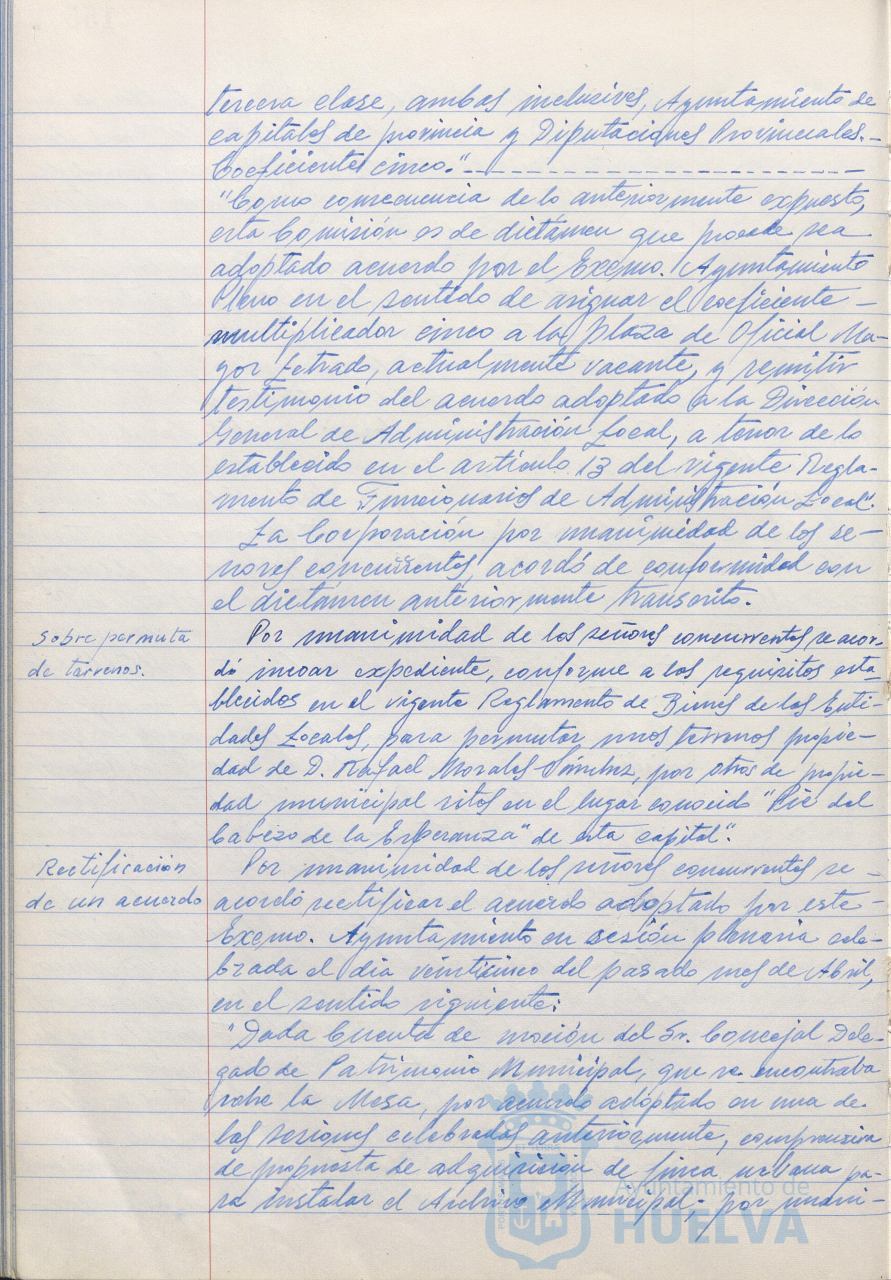 tercera clase, ambas inclusives, Ayuntamiento de
capitales de provincia y Diputaciones Provinciales.-
Coeficiente cinco."-----------------------------
"Como consecuencia de lo anteriormente expuesto,
esta Comisión es de dictámen que procede sea
adoptado acuerdo por el Excmo. Ayuntamiento
Pleno en el sentido de asignar el coeficiente -
multiplicador cinco a la plaza de Oficial Ma-
yor Letrado, actualmente vacante, y remitir
testimonio del acuerdo adoptado a la Dirección
General de Administración Local, a tenor de lo
establecido en el artículo 13 del vigente Regla-
mento de Funcionarios de Administración Local".
La Corporación por unanimidad de los se-
ñores concurrentes, acordó de conformidad con
el dictámen anteriormente transcrito.
Sobre permuta
de terrenos.
Por unanimidad de los señores concurrentes se acor-
dó incoar expediente, conforme a los requisitos esta-
blecidos en el vigente Reglamento de Bienes de las Enti-
dades Locales, para permutar unos terrenos propie-
dad de D. Rafael Morales Sánchez, por otros de propie-
dad municipal sitos en el lugar conocido "Pie del
Cabezo de la Esperanza" de esta capital".
Rectificación
de un acuerdo
Por unanimidad de los señores concurrentes se -
acordó rectificar el acuerdo adoptado por este -
Excmo. Ayuntamiento en sesión plenaria cele-
brada el día veinticinco del pasado mes de Abril,
en el sentido siguiente:
"Dada Cuenta de moción del Sr. Concejal Dele-
gado de Patrimonio Municipal, que se encontraba
sobre la Mesa, por acuerdo adoptado en una de
las sesiones celebradas anteriormente, comprensiva
de propuesta de adquisición de finca urbana pa-
ra instalar el Archivo Municipal; por unani-
Ayuntamiento de
HUELVA